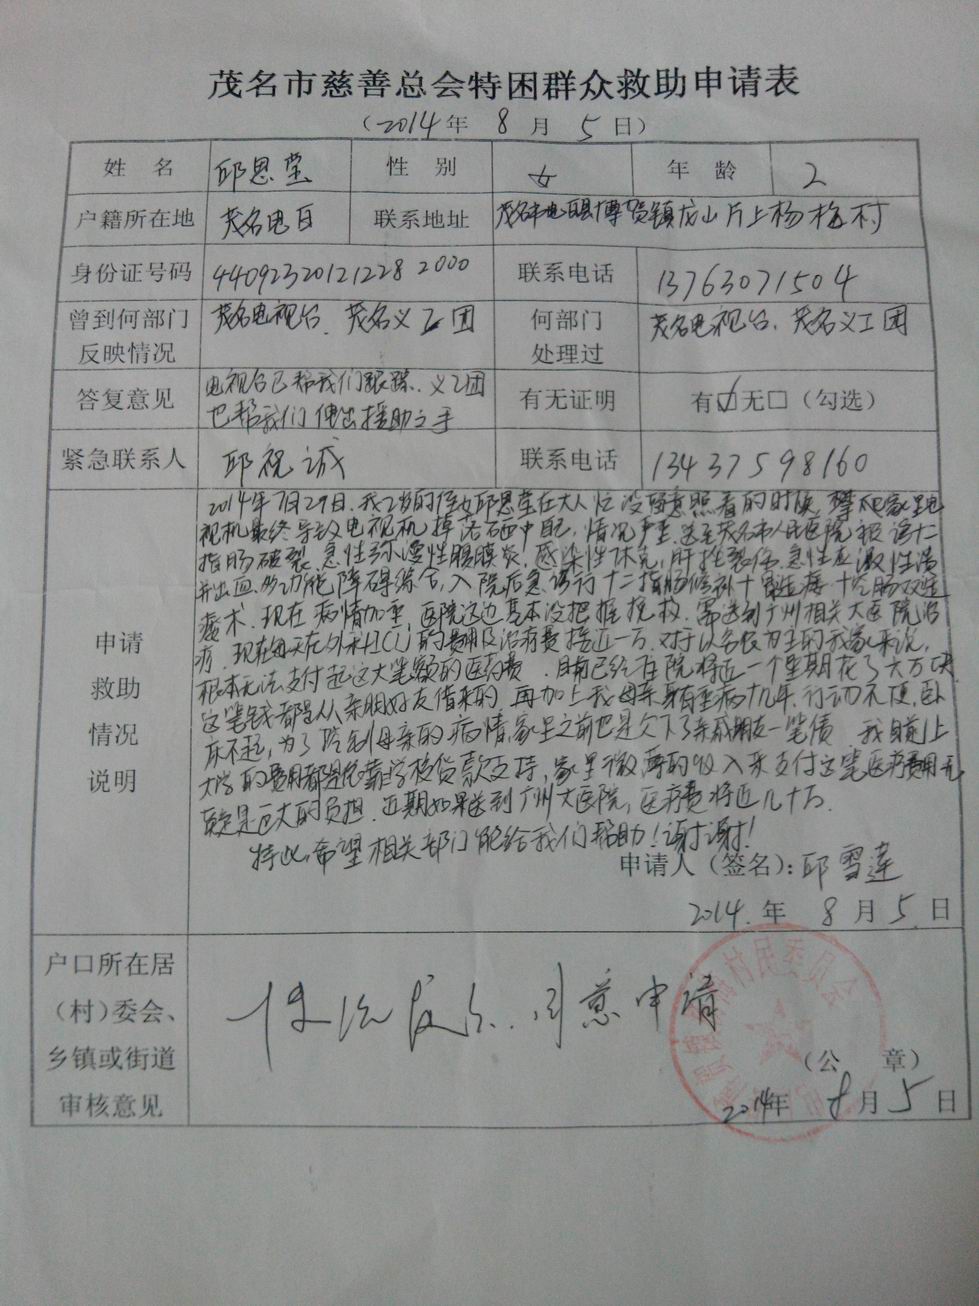 茂名市慈善总会特困群众救助申请表
（2014年 8 月 5 日）
姓 名 邱恩堂 性 别 女 年 龄 2
户籍所在地 茂名电白 联系地址 茂名市电白县博贺镇龙山片上杨梅村
身份证号码 440923201212282000 联系电话 13763071504
曾到何部门反映情况 茂名电视台、茂名义工团 何部门处理过 茂名电视台、茂名义工团
答复意见 电视台已帮我们跟踪、义工团
也帮我们伸出援助之手 有无证明 有☑无□（勾选）
紧急联系人 邱祝诚 联系电话 13437598160
申请
救助
情况
说明
2014年7月29日，我2岁的侄女邱恩堂在大人忙没留意照看的时候，攀爬家里电
视机最终导致电视机掉落砸中腹，情况严重，送至茂名市人民医院被诊十二
指肠破裂、急性弥漫性腹膜炎、感染性休克、肝挫裂伤、急性应激性溃
并出血、多功能障碍综合，入院后急诊行十二指肠修补
术．现在病情加重，医院这边基本没把握挽救，需送到广州相关大医院治
疗．现在每天在外科ICU的费用及治疗费接近一万．对于以务农为主的我家来说，
根本无法支付起这大笔额的医药费．目前已经在院将近一个星期花了六万块
这笔钱都是从亲朋好友借来的，再加上我母亲身有重病十几年，行动不便，卧
床不起，为了医治母亲的病情，家里之前也是欠下了亲戚朋友一笔债 我目前上
大学的费用都是依靠学校贷款支持，家里微薄的收入来支付这笔医疗费用无
疑定是巨大的负担．近期如果送到广州大医院，医疗费将近几十万．
特此，希望相关部门能给我们帮助！谢谢！
申请人（签名）：邱雪莲
2014.年 8 月 5 日
户口所在居
（村）委会、
乡镇或街道
审核意见
情况属实．同意申请
村民委员会
（公 章）
2014年 8 月 5 日